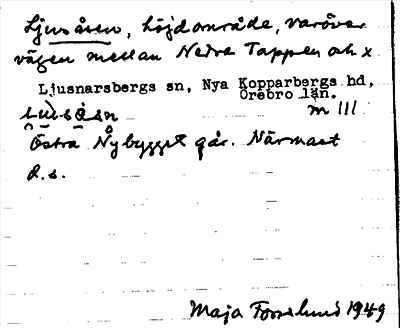 Ljusåsen, höjdområde, varöver
vägen mellan Nedre Tappen och x
Ljusnarsbergs sn, Nya Kopparbergs hd,
Örebro län.
m III
Östra Nybygget går. Närmast
d.s.
Maja Forslund 1949